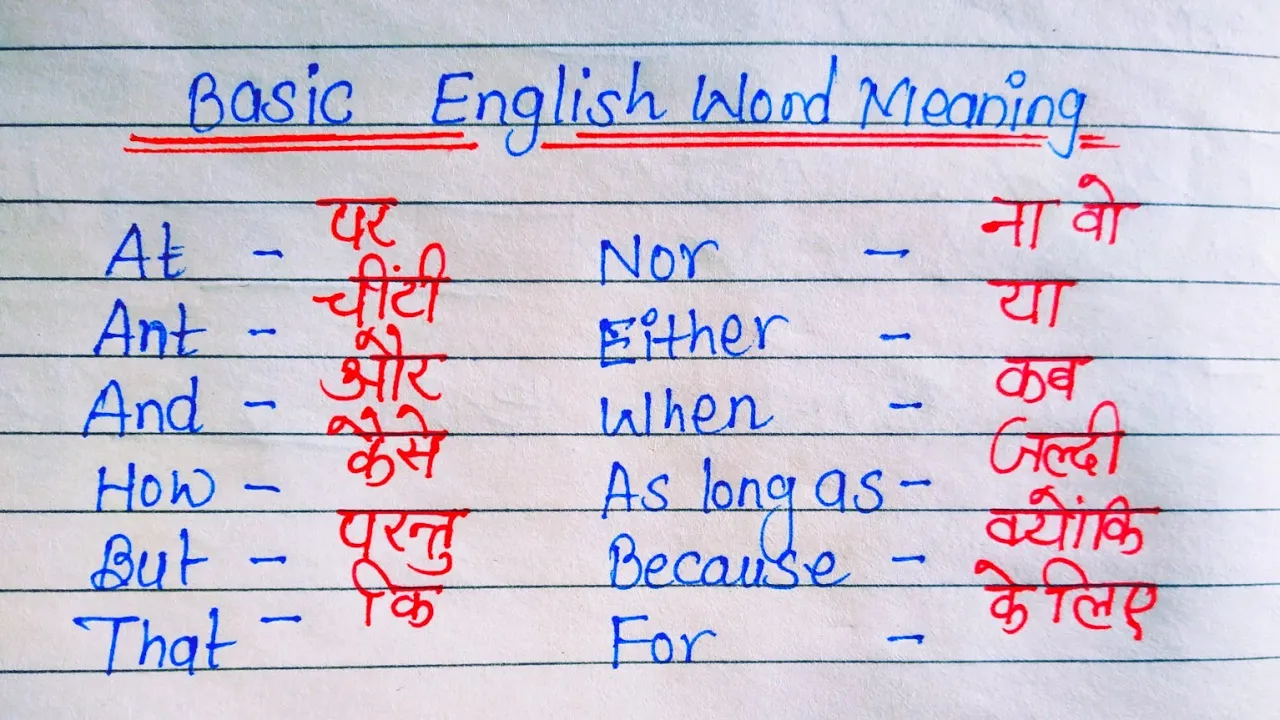 Basic English Word Meaning
At - पर Nor - ना वो
Ant - चींटी Either - या
And - और When - कब
How - कैसे As long as - जल्दी
But - परन्तु Because - क्योंकि
That - कि For - के लिए